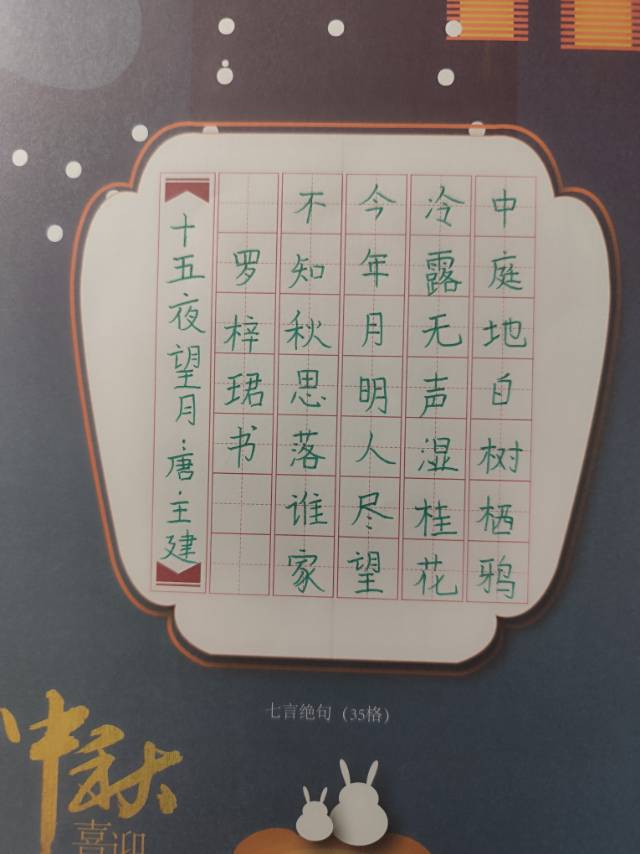 中庭地白树栖鸦
冷露无声湿桂花
今年月明人尽望
不知秋思落谁家
罗梓珺书
十五夜望月:唐·王建
七言绝句（35格）
中秋
喜迎